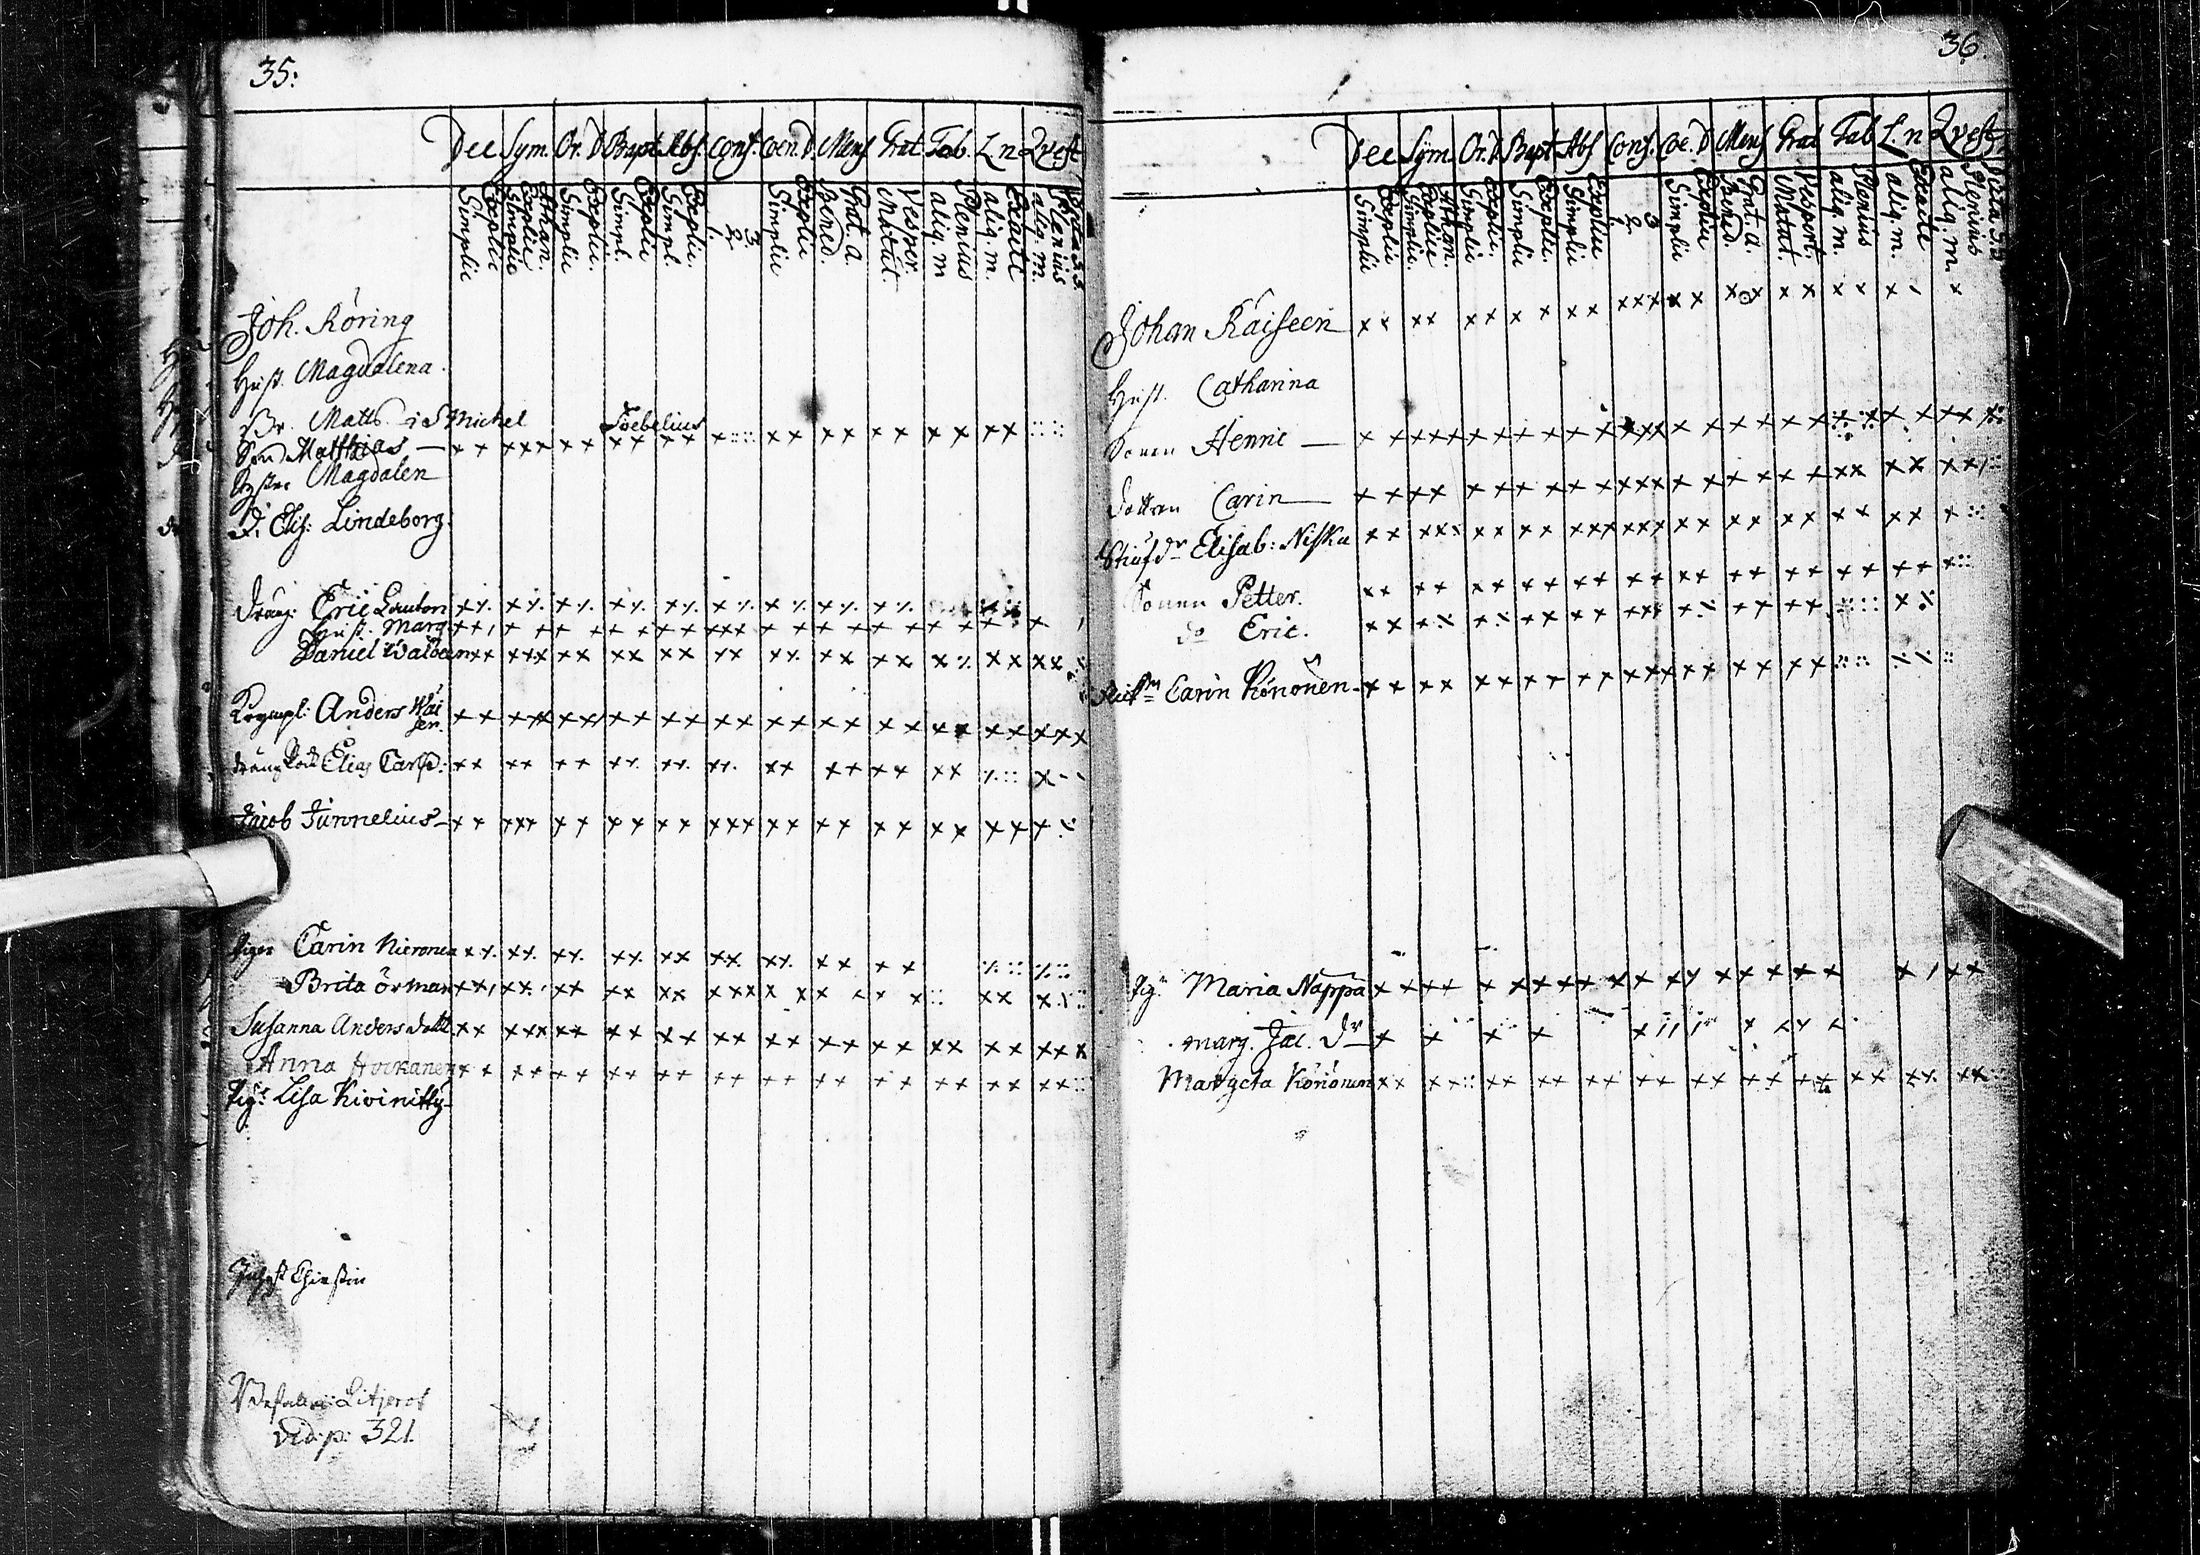 35:
Dec Sym. Or. D Bapt. Abs. Conf. Coen. D. Mens Grat. Tab. L n Qvest
Simplic Explic Simplic Explic Athan. Simplic Explic. Simpl. Explic Simpl. Explic. 1. 2. 3. Simplic Explic Bened. Grat. a. Matut. Vesper. aliq. m Plenius aliq. m. Exacte aliq. m. Plenius
Joh. Röring
Hust. Magdalena.
Br. Matts i S Michel Toebelius
Son Matthias
Magdalen
D. Elis: Lindeborg.
dräng: Eric Lauton
Hust. Marg.
Daniel
Anders
dräng Elias Carß:
Jacob Junnelius
Piger Carin Nieronen
Brita örman
Susanna Anders dott
Anna Hockanen
Pig: Lisa Kivinitty
Chirstin
vid. p: 321.
36.
Dec Sym. Or. D. Bapt Abs Conf. Coe. D Mens Grat Tab L. n Qvest
Simplic Explic Simplic. Explic Athan. Simplic Explic. Simplic Explic. Simplic Explic 1 2 3 Simplic Explic Bened. Grat. a. Matut Vespert. aliq. m. Plenius aliq. m. Exacte aliq. m. Plenius
Johan Kaiseen
Hust. Catharina
Sonen Henric
dottren Carin
Stiufdr Elisab: Niska
Sonen Petter.
do Eric.
Carin Könönen
Pig: Maria Nappa
marg. Jac. Dr
Margeta Könönen